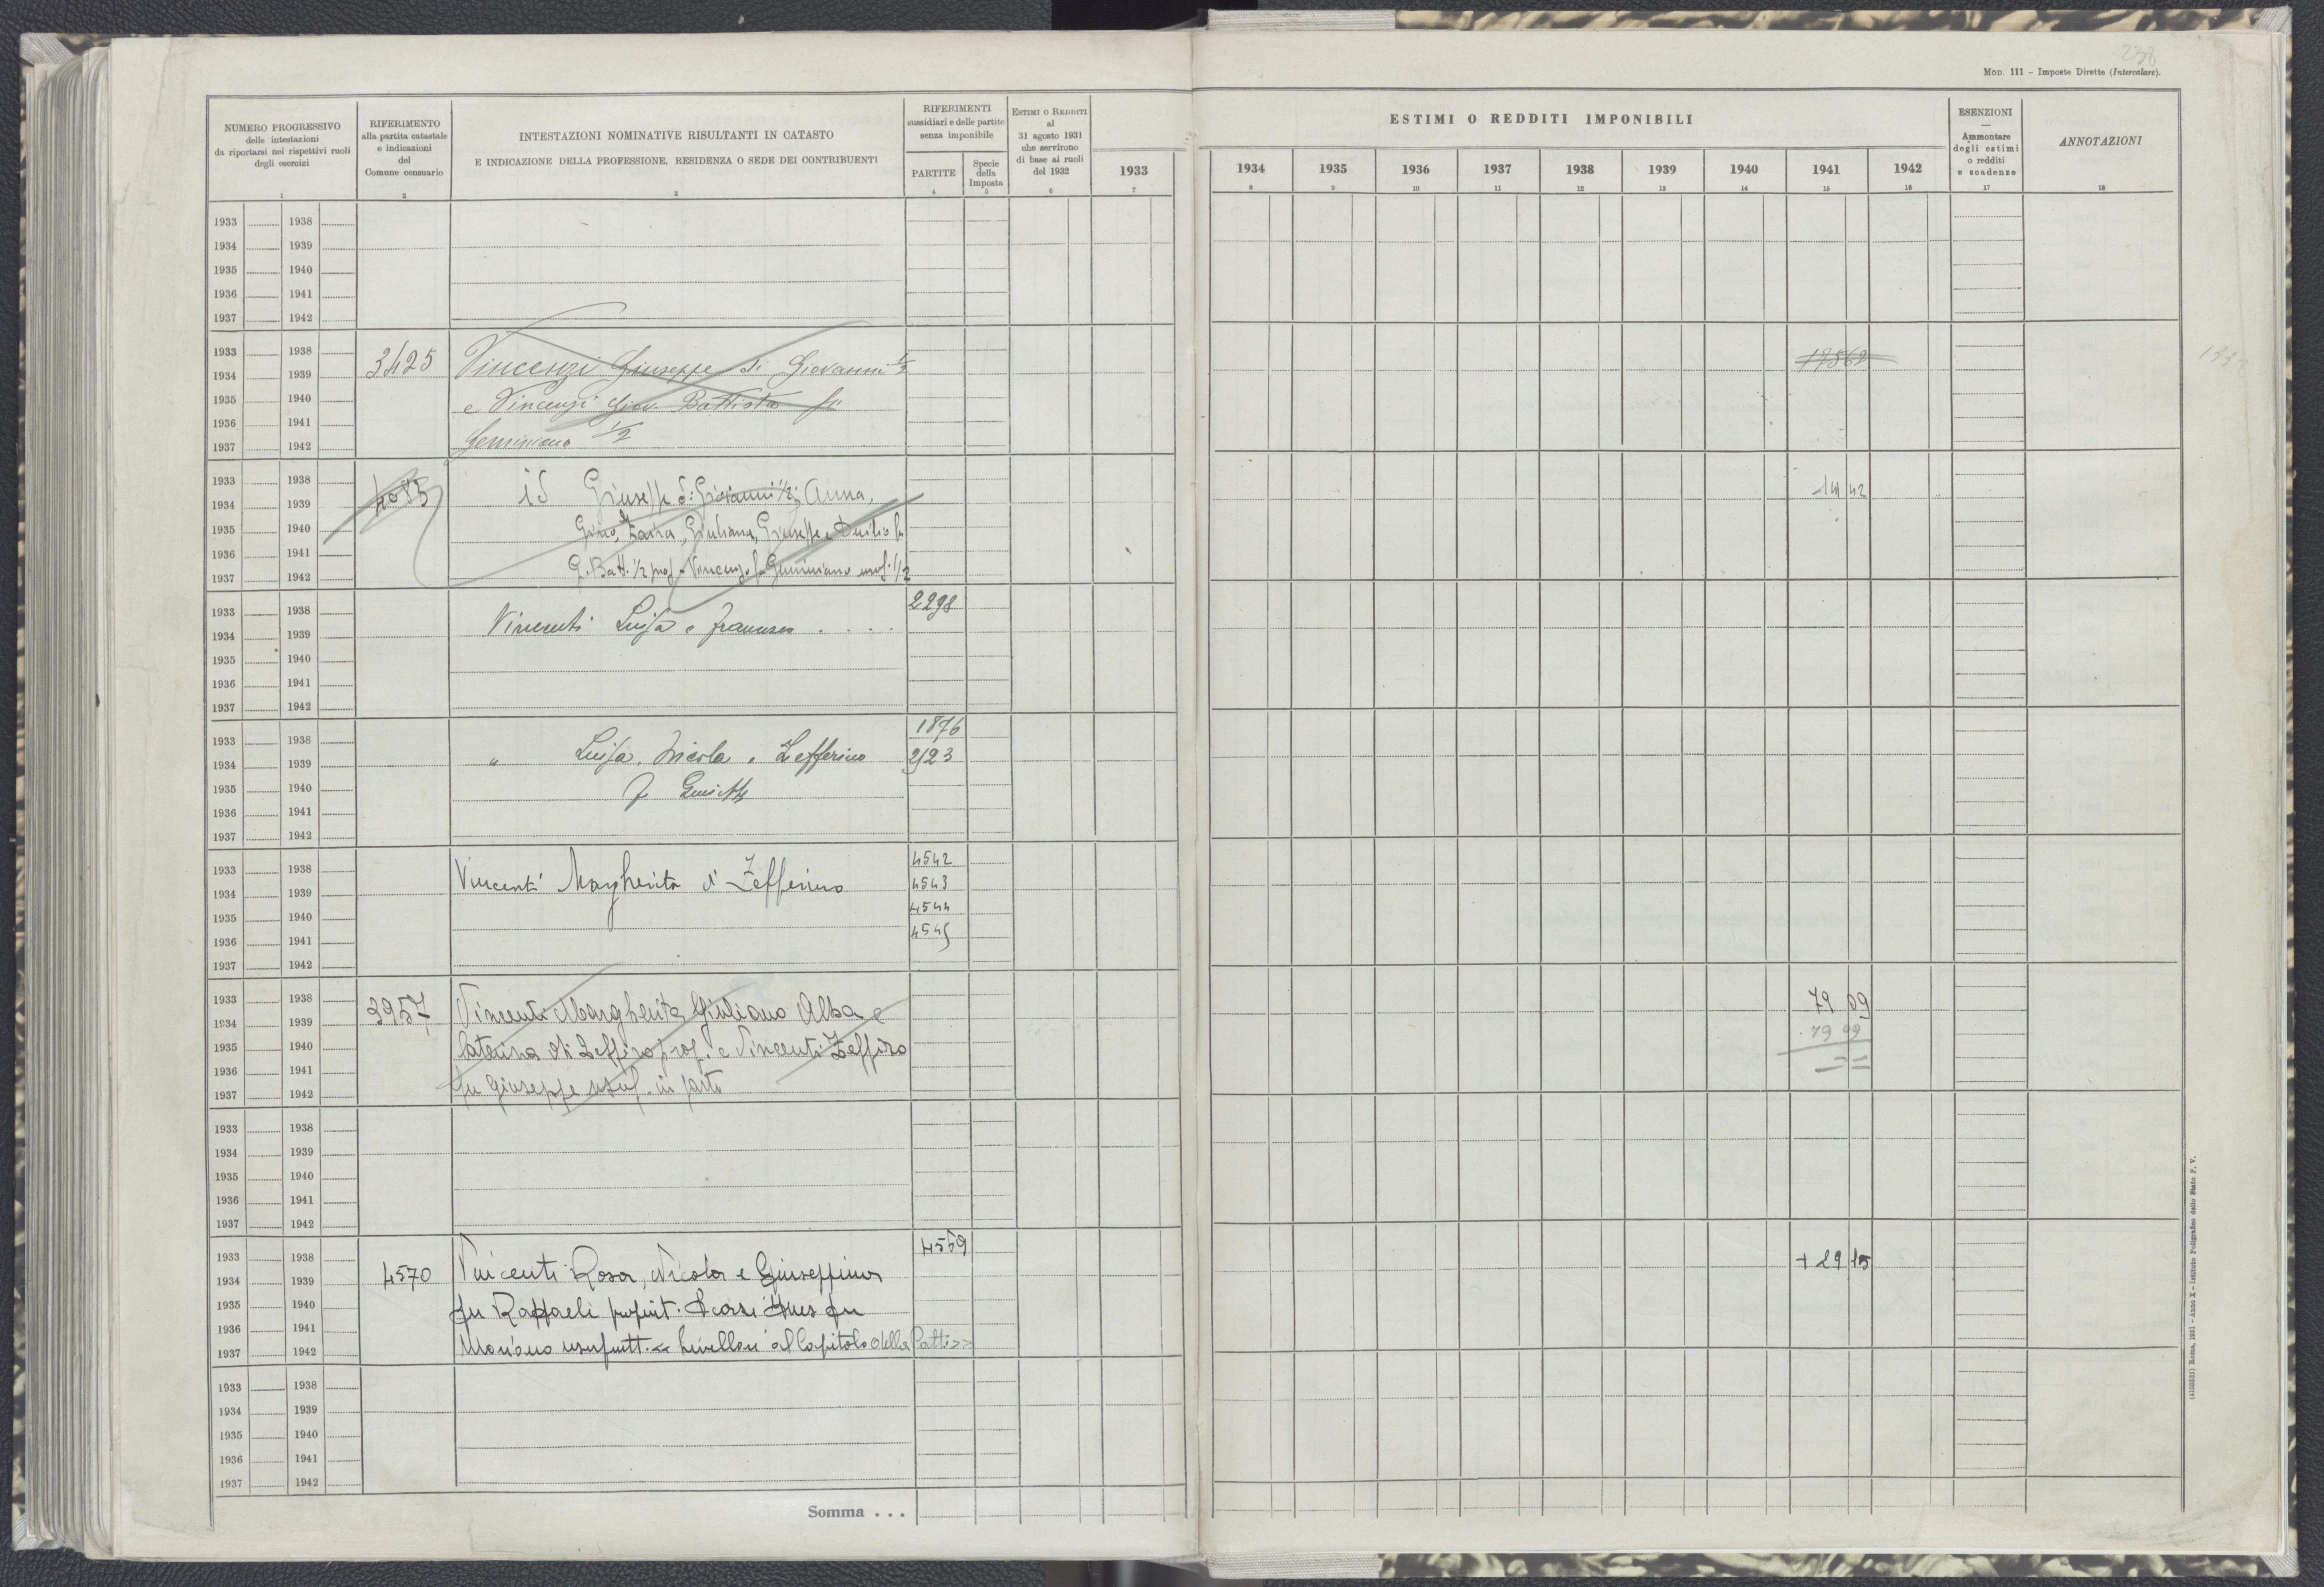 238
MOD. 111 – Imposte Dirette (Intercalare).
NUMERO PROGRESSIVO
delle intestazioni
da riportarsi nei rispettivi ruoli
degli esercizi
1
RIFERIMENTO
alla partita catastale
e indicazioni
del
Comune censuario
2
INTESTAZIONI NOMINATIVE RISULTANTI IN CATASTO
E INDICAZIONE DELLA PROFESSIONE, RESIDENZA O SEDE DEI CONTRIBUENTI
3
RIFERIMENTI
sussidiari e delle partite
senza imponibile
PARTITE
4
Specie
della
Imposta
5
ESTIMI O REDDITI
al
31 agosto 1931
che servirono
di base ai ruoli
del 1932
6
1933
7
ESTIMI O REDDITI IMPONIBILI
1934 1935 1936 1937 1938 1939 1940 1941 1942
8 9 10 11 12 13 14 15 16
ESENZIONI
—
Ammontare
degli estimi
o redditi
e scadenze
17
ANNOTAZIONI
18
1933 1938
1934 1939
1935 1940
1936 1941
1937 1942
1933 1938
1934 1939 3425 Vincenzi Giuseppe di Giovanni 1/2 17562
1935 1940 e Vincenzi Giov. Battista fu
1936 1941
1937 1942 Geminiano 1/2
1933 1938
1934 1939 4085 id Giuseppe di Giovanni 1/2; Anna, 141 42
1935 1940 Gino, Zaira, Giuliana, Giuseppe e Duilio fu
1936 1941
1937 1942 G. Batt. 1/2 prop. Vincenzo fu Geminiano usuf. 1/2
1933 1938 2298
1934 1939 Vincenti Luisa e Francesco . . . .
1935 1940
1936 1941
1937 1942
1933 1938 1876
1934 1939 " Luisa, Nicola e Zefferino 2123
1935 1940 fu
1936 1941
1937 1942
1933 1938 4542
1934 1939 Vincenti Margherita di Zefferino 4543
1935 1940 4544
1936 1941 4545
1937 1942
1933 1938
1934 1939 3957 Vincenti Margherita Giuliano Alba e 79 99
1935 1940 Caterina di Zeffiro prop. e Vincenti Zeffiro 79 99
1936 1941 = =
1937 1942 fu Giuseppe usuf. in parte
1933 1938
1934 1939
1935 1940
1936 1941
1937 1942
1933 1938 4559
1934 1939 4570 Vincenti Rosa, Nicola e Giuseppina + 29 15
1935 1940 fu Raffaeli propriet. fu
1936 1941
1937 1942 usufrutt. << livellari al Capitolo della >>
1933 1938
1934 1939
1935 1940
1936 1941
1937 1942
Somma . . .
(4100531) Roma, 1931 – Anno X – Istituto Poligrafico dello Stato P. V.